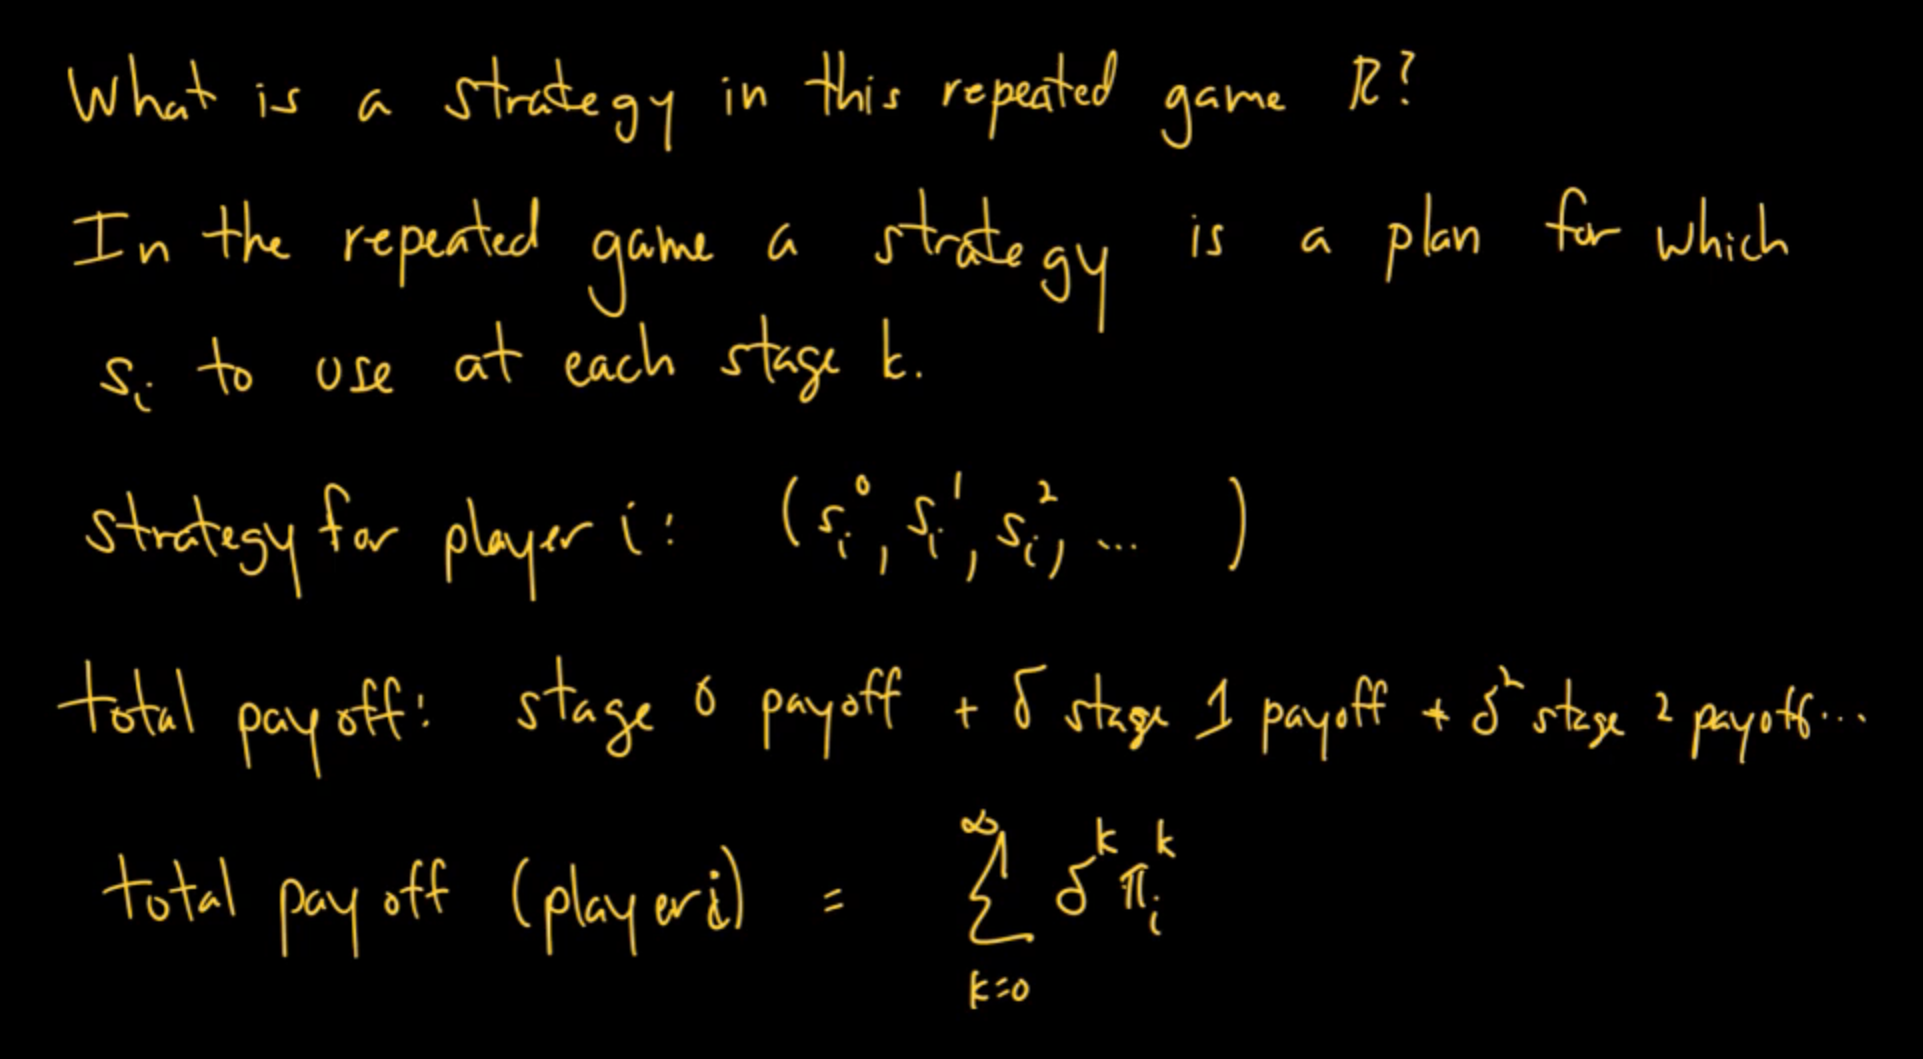 What is a strategy in this repeated game R?
In the repeated game a strategy is a plan for which
sᵢ to use at each stage k.
strategy for player i: (sᵢ⁰, sᵢ¹, sᵢ², ... )
total payoff: stage 0 payoff + δ stage 1 payoff + δ² stage 2 payoff...
total payoff (player i) = ∑_{k=0}^{∞} δᵏ πᵢᵏ